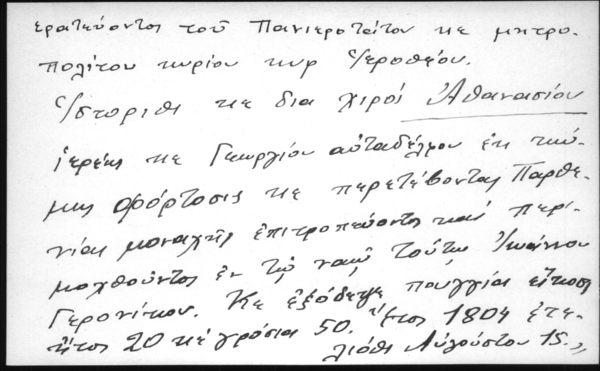 ερατεύοντος τοῦ Πανιεροτάτου κε μητρο-
πολίτου κυρίου κυρ Ἱεροθέου.
Ἱστορίθι κε δια χιρός Ἀθανασίου
ἱερέως κε Γεωργίου αὐταδέλφου ἐκ κώ-
μης Φόρτοσις κε περετέβοντας Παρθε-
νίας μοναχῆς ἐπιτροπεύοντος καί περι-
μαχθοῦντος ἐν τῷ ναῷ τούτῳ Ἰωάννου
Γερονίκου. Κε ἐξόδεψε πουγγία εἴκοσι
ἤτος 20 κέ γρόσια 50. Ἔτος 1804 ἐτε-
λιόθι Αὐγούστου 15.,,